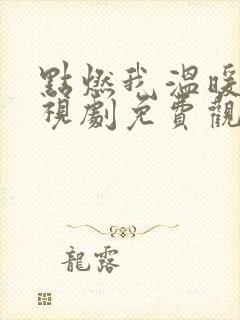 點燃我溫暖
視劇免費觀
龍露